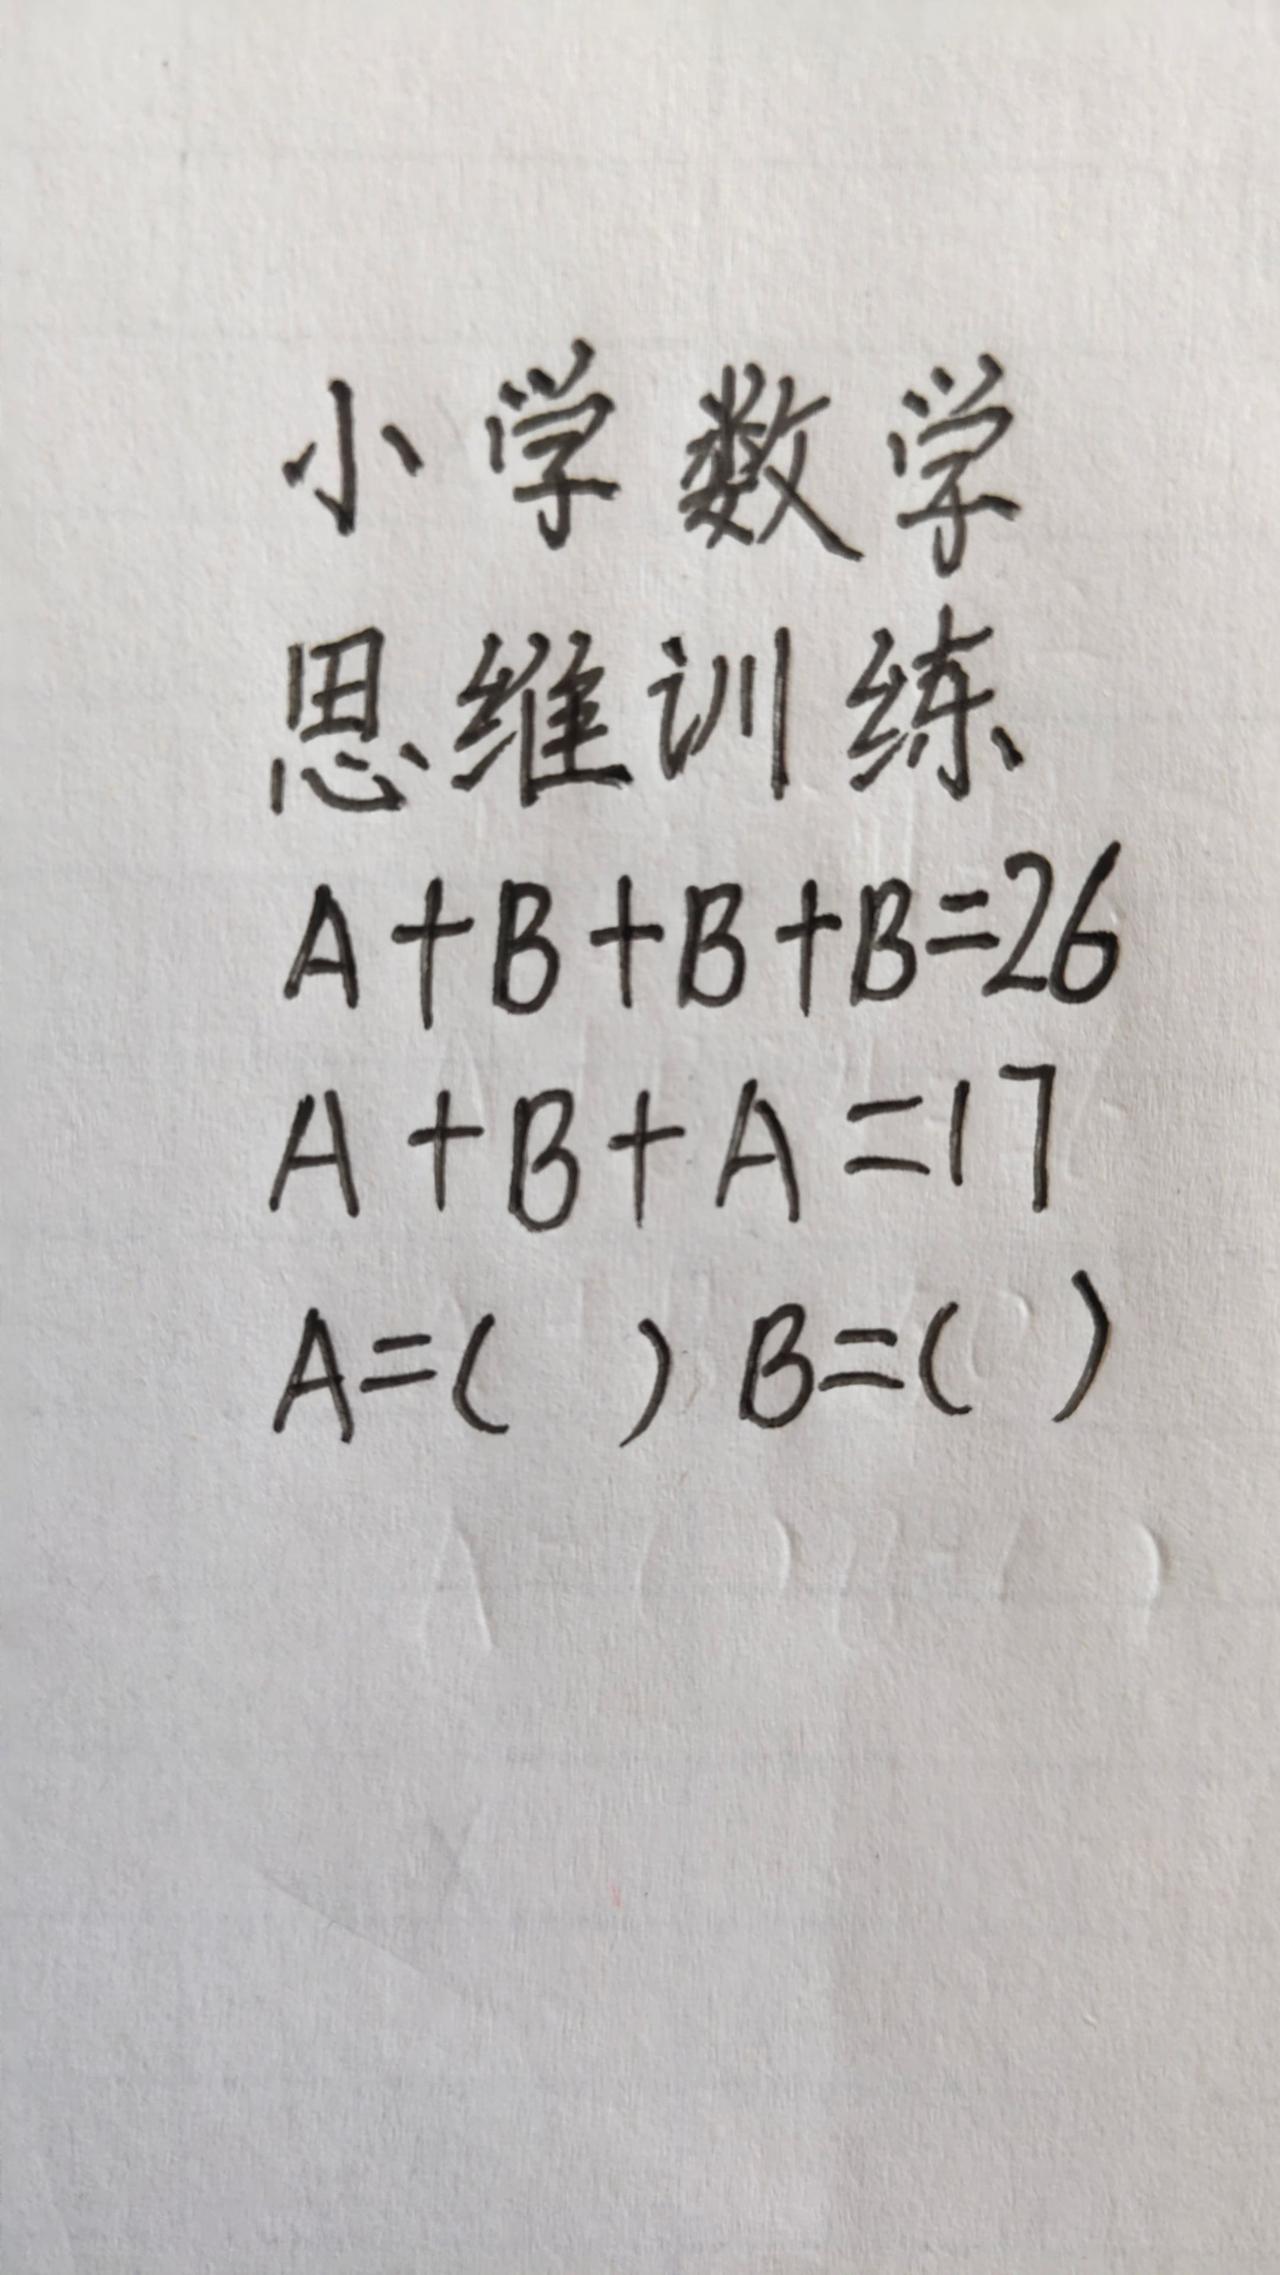 小学数学
思维训练
A+B+B+B=26
A+B+A=17
A=( ) B=( )